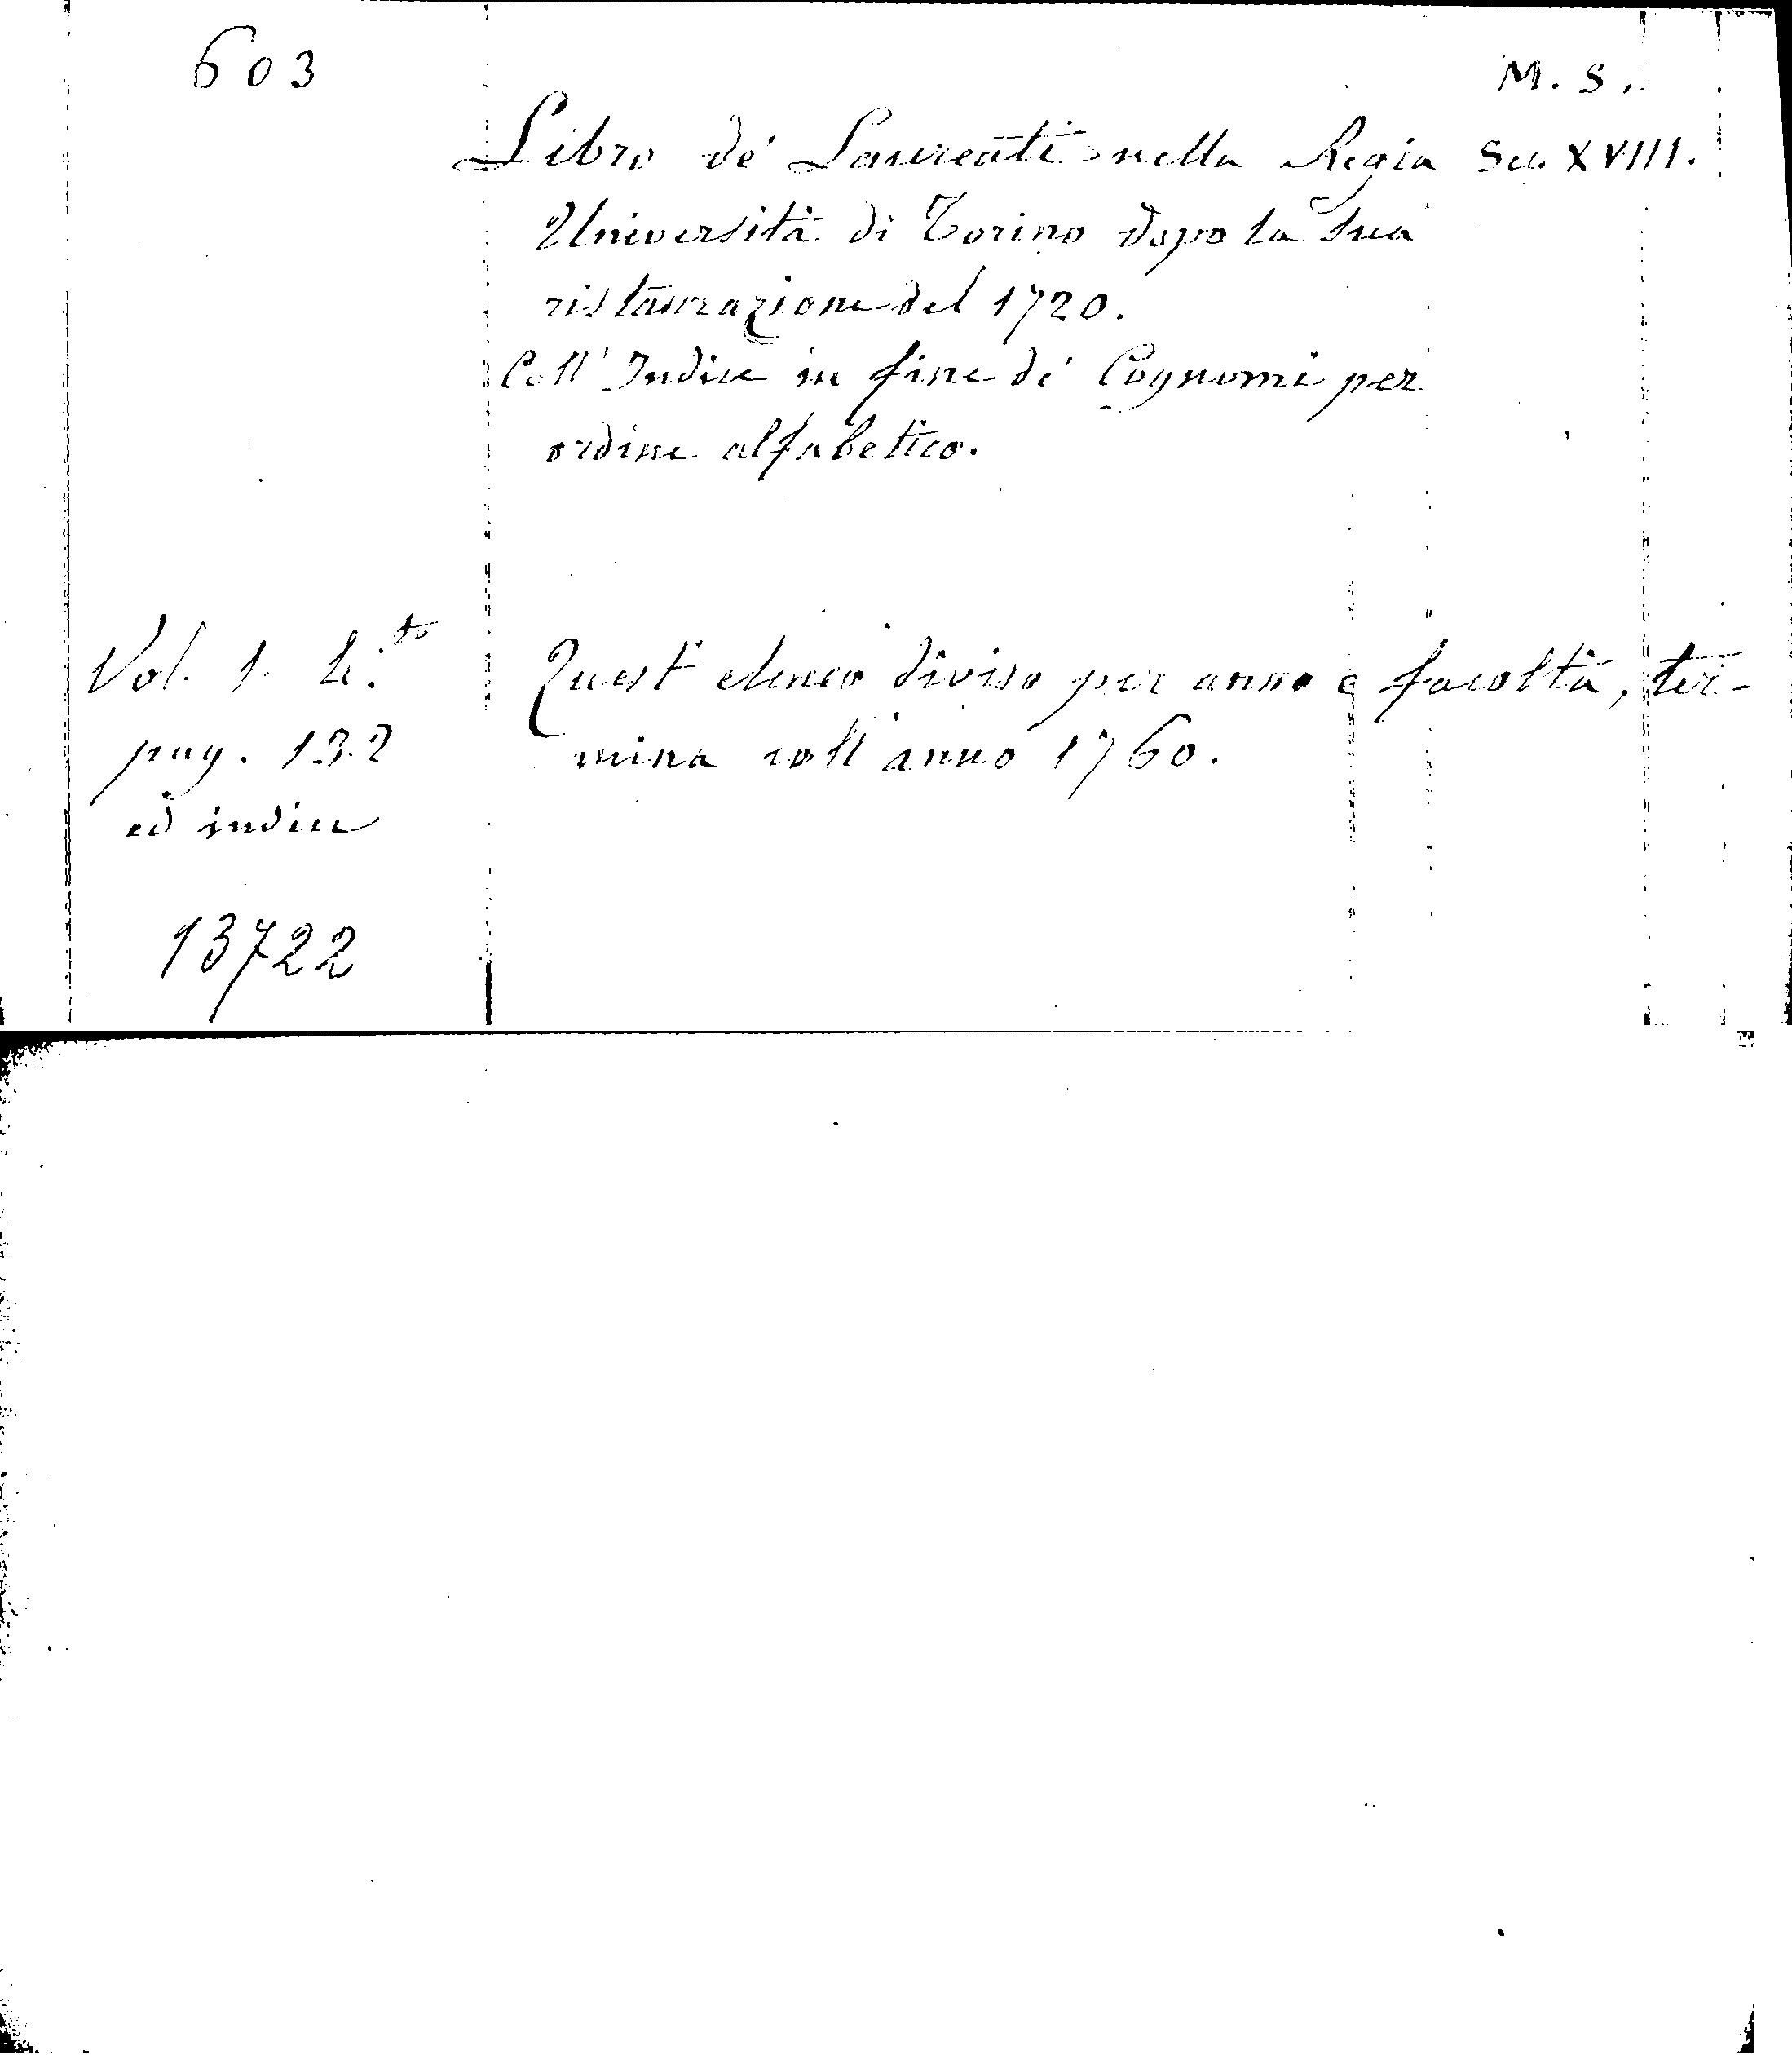 603
M. S.
Libro de' Laureati nella Regia Sec. XVIII.
Università di Torino dopo la sua
ristaurazione del 1720.
Coll' Indice in fine de' Cognomi per
ordine alfabetico.
Vol. 1. 4.to
Quest' elenco diviso per anno e facoltà, ter-
mina coll' anno 1760.
pag. 132
ed indice
13722